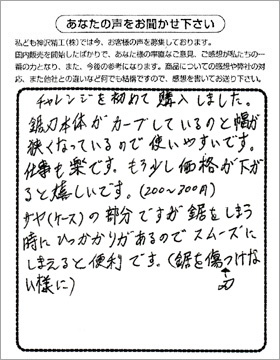 あなたの声をお聞かせ下さい
私ども神沢精工(株)では今、お客様の声を募集しております。
国内販売を開始したばかりで、あなた様の率直なご意見、ご感想が私たちの一
番の力となり、また、今後の参考になります。商品についての感想や弊社の対
応、また他社との違いなど何でも結構ですので、感想を書いてお送り下さい。
チャレンジを初めて購入しました。
鋸刃本体がカーブしているのと幅が
狭くなっているので使いやすいです。
仕事も楽です。もう少し価格が下が
ると嬉しいです。(200〜300円)
サヤ(ケース)の部分ですが鋸をしまう
時にひっかかりがあるのでスムーズに
しまえると便利です。(鋸を傷つけな
い様に) 刃